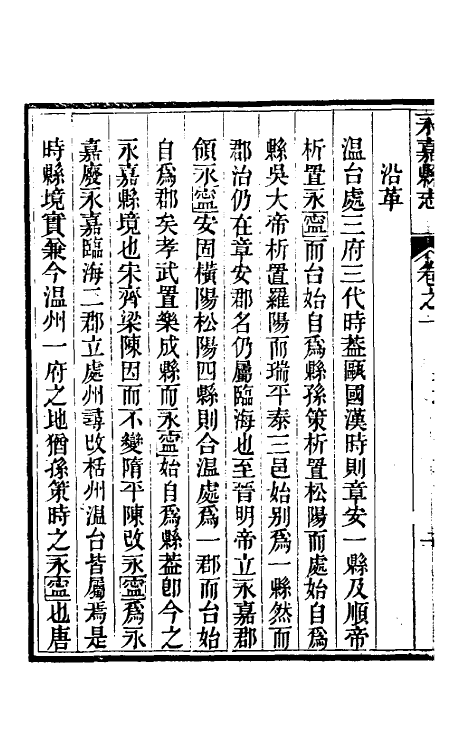 永嘉縣志 卷之一
沿革
温台處三府三代時葢甌國漢時則章安一縣及順帝
析置永寍而台始自爲縣孫策析置松陽而處始自爲
縣吳大帝析置羅陽而瑞平泰三邑始别爲一縣然而
郡治仍在章安郡名仍屬臨海也至晉明帝立永嘉郡
領永寍安固横陽松陽四縣則合温處爲一郡而台始
自爲郡矣孝武置樂成縣而永寍始自爲縣葢卽今之
永嘉縣境也宋齊梁陳因而不變隋平陳改永寍爲永
嘉廢永嘉臨海二郡立處州尋改栝州温台皆屬焉是
時縣境實兼今温州一府之地猶孫策時之永寍也唐